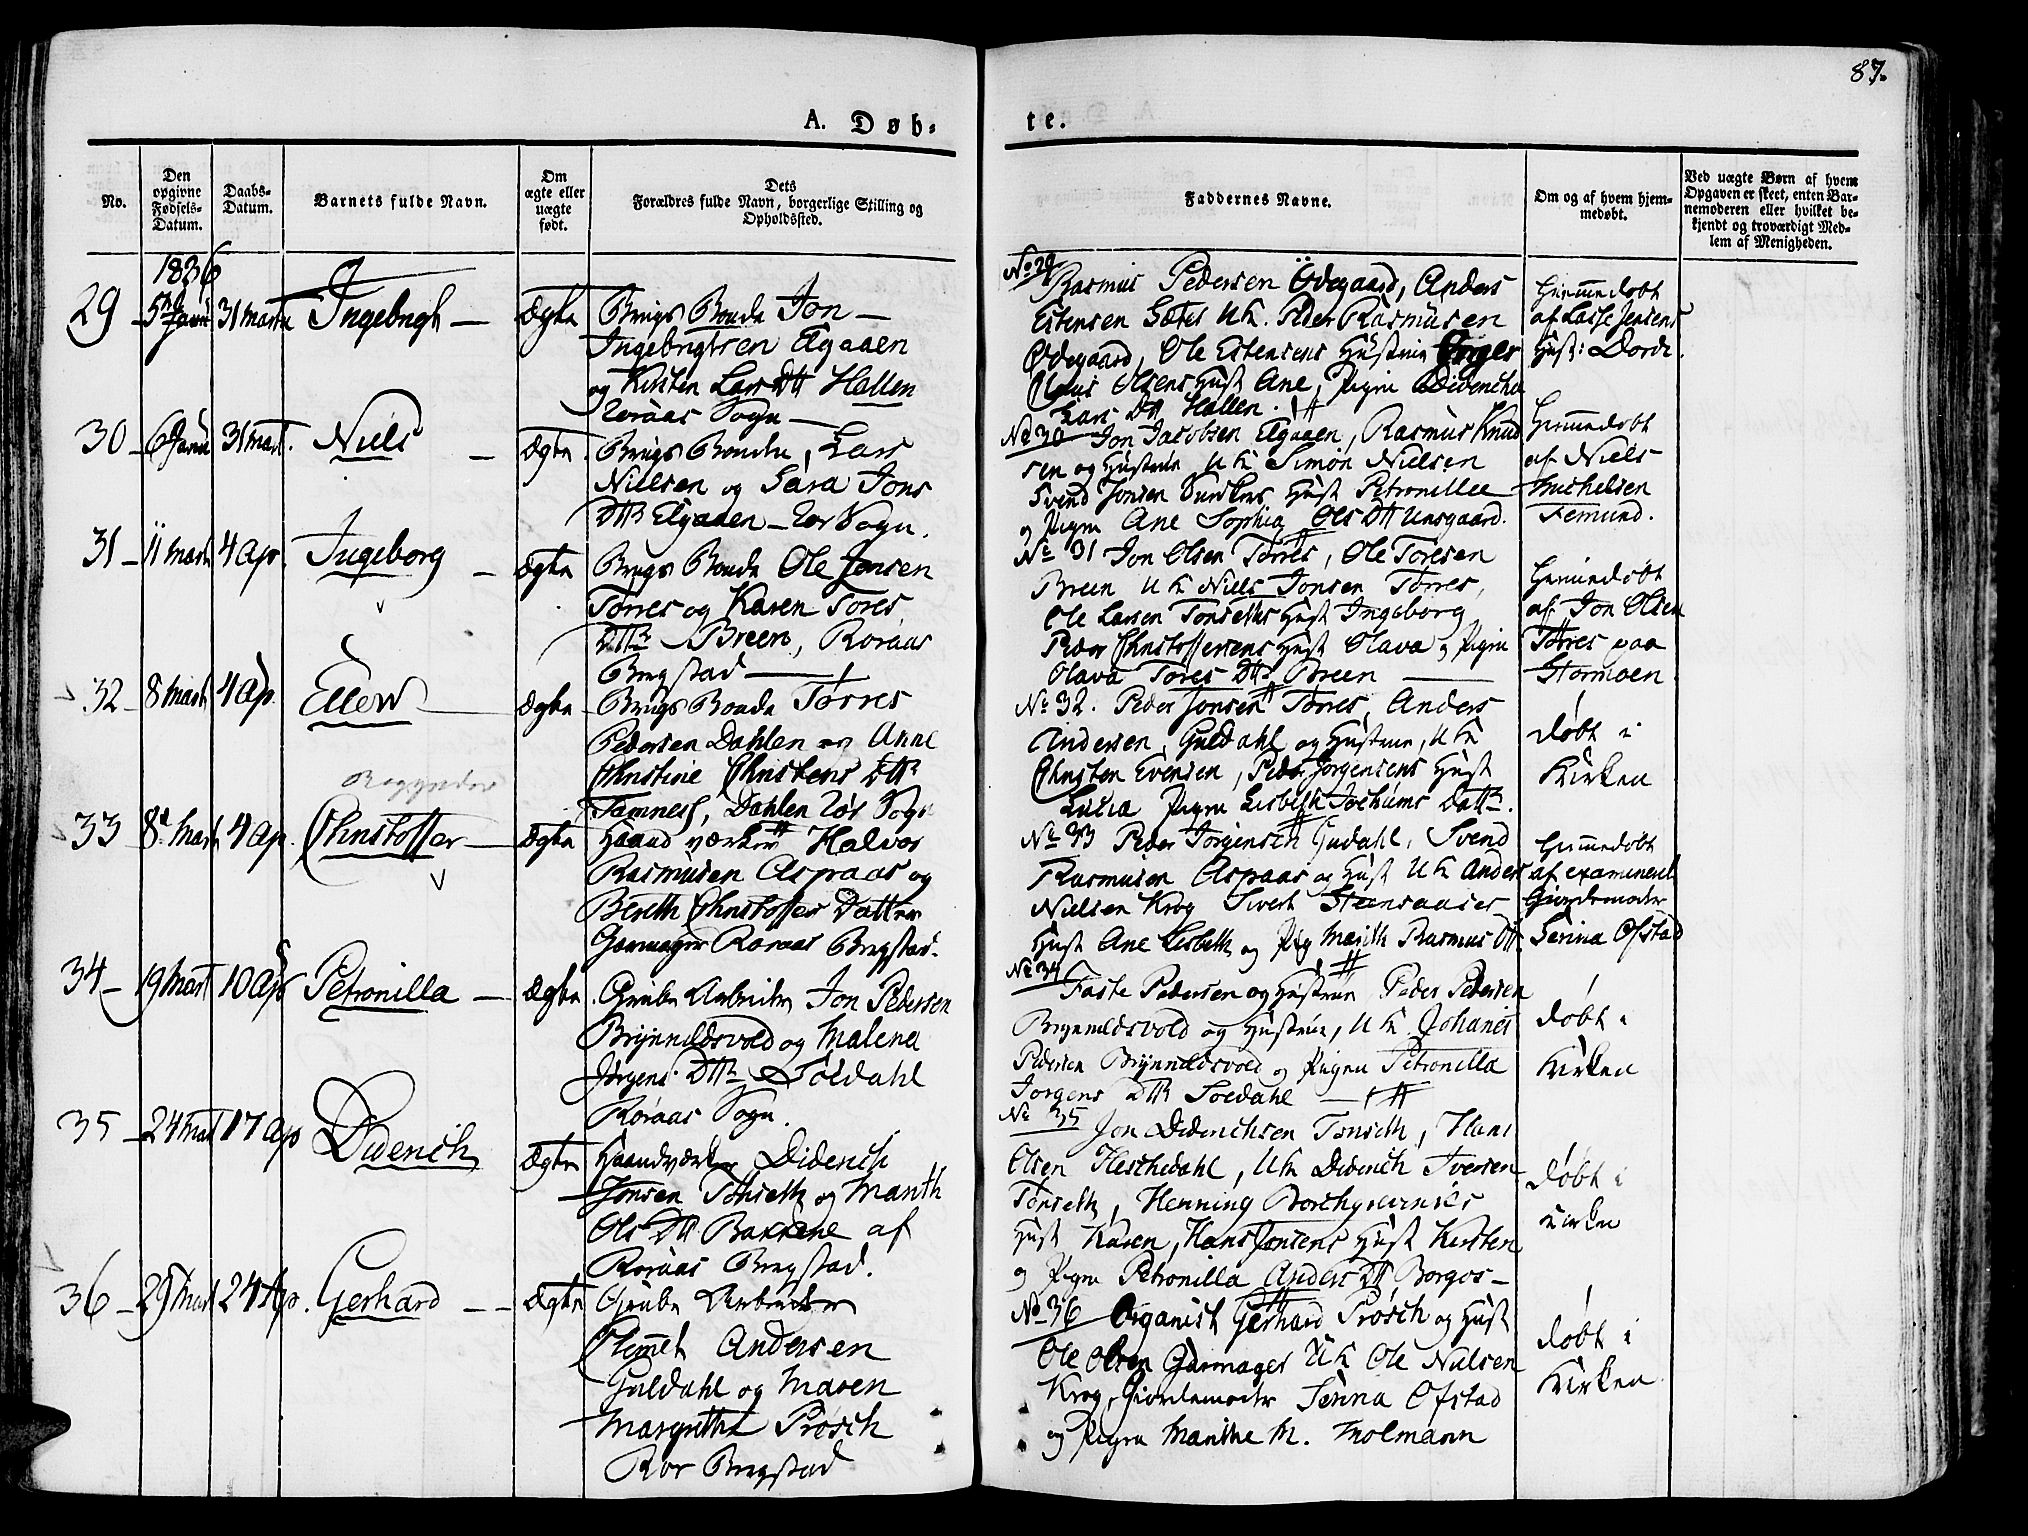 87.
A. Døb-
te.
No.
Den opgivne Fødsels-Datum.
Daabs-Datum.
Barnets fulde Navn.
Om ægte eller uægte født.
Dets Forældres fulde Navn, borgerlige Stilling og Opholdssted.
Faddernes Navne.
Om og af hvem hjemmedøbt.
Ved uægte Børn af hvem Opgaven er skeet, enten Barnemoderen eller hvilket bekjendt og troværdigt Medlem af Menigheden.
1836
29 5te Janu 31 Marts Ingebrigt Ægte
Brugs Bonde Jon
Ingebrigtsen Elgaaen
og Kirsten Lars Dttr Hallen
Røraas Sogn
No 29
Rasmus Pedersen Ödegaard, Anders
Estensen Sæter UK. Peder Rasmusen
Ødegaard, Ole Estensens Hustrue Inger
Olsens Hust Ane, Pigen
Lars Dtt Hallen.
Hiemmedøbt
af Lasse Jensens
Hust: Dordi.
30 6 Janu 31 Mart. Niels Ægte
Brugs Bonde, Lars
Nielsen og Sara Jons
Dttr Elgaaen - Sogn.
No 30 Jon Jacobsen Elgaaen, Rasmus Knud
sen og Hustrue UK Simon Nielsen
Svend Jonsen Hust Petronille
og Pigen Ane Sophia Ols Dtt Unsgaard.
Hiemmedøbt
af Niels
Michelsen
Femund.
31 11 Marts 4 Ap. Ingeborg Ægte
Brugs Bonde Ole Jonsen
Torres og Karen Tores
Dttr Breen, Roraas
Bregstad
No 31 Jon Olsen Torres, Ole Toresen
Breen UK Niels Jonsen Torres,
Ole Larsen Tonseths Hust Ingeborg
Peder Christoffersens Hust Olava og Pigen
Olava Tores Dttr Breen
Hiemmedøbt
af Jon Olsen
Torres paa
Stormoen
32 8 Marts 4 Ap. Ellen Ægte
Brugs Bonde Tørres
Pedersen Dahlen og Anne
Christine Christens Dttr
Tamness, Dahlen Sogn
No 32. Peder Jonsen Torres, Anders
Andersen, Guldahl og Hustrue, UK
Christen Evensen, Peder Jorgensens Hust
Lucia Pigen Lisbeth Jochums Dattr.
Døbt i
Kirken
33 8de Marts 4 Ap. Christoffer Ægte
Haandværker Halvor
Rasmusen Aspaas og
Bereth Christoffer Datter
Garmager Roraas Bregstad.
No 33 Peder Jorgensen Guldahl, Svend
Rasmusen Aspaas og Hust UK Anders
Nielsen Krog Sivert Steensaases
Hust Ane Lisbeth og Pig Marith Rasmus Dtt.
Hiemmedøbt
af examineret
Giordemoder
Serina Ofstad
34 19 Mart 10 Ap Petronilla Ægte
Grube Arbeider Jon Pedersen
Brynnildsvold og Malena
Jörgens Dttr Soldahl
Roraas Sogn.
No 34
Faste Pedersen og Hustrue Peder Pedersen
Brynnildsvold og Hustrue, UK Johanes
Pedersen Brynnildsvold og Pigen Petronilla
Jorgens Dttr Soldahl
Døbt i
Kirken
35 24 Mart 17 Ap Diderich Ægte
Haandværker Diderich
Jonsen Tonseth og Marith
Ols Dtt Bakkene af
Roraas Bregstad.
No 35
Jon Diderichsen Tonseth, Hans
Olsen Heschedahl, UK Diderich Iversen
Tonseth, Henning Borchgrevincks
Hust Karen, Hans Jensens Hust Kirsten
og Pigen Petronilla Anders Dtt Borgos
Døbt i
Kirken
36 29 Mart 24 Ap. Gerhard Ægte
Grube Arbeider
Clemet Andersen
Guldahl og Maren
Margrethe Prösch
Ror Bregstad
No 36 Organist Gerhard Prösch og Hust
Ole Olsen Garmager UK Ole Nielsen
Krog, Giordemoder Serina Ofstad
og Pigen Marithe M. Molmann
Døbt i
Kirken